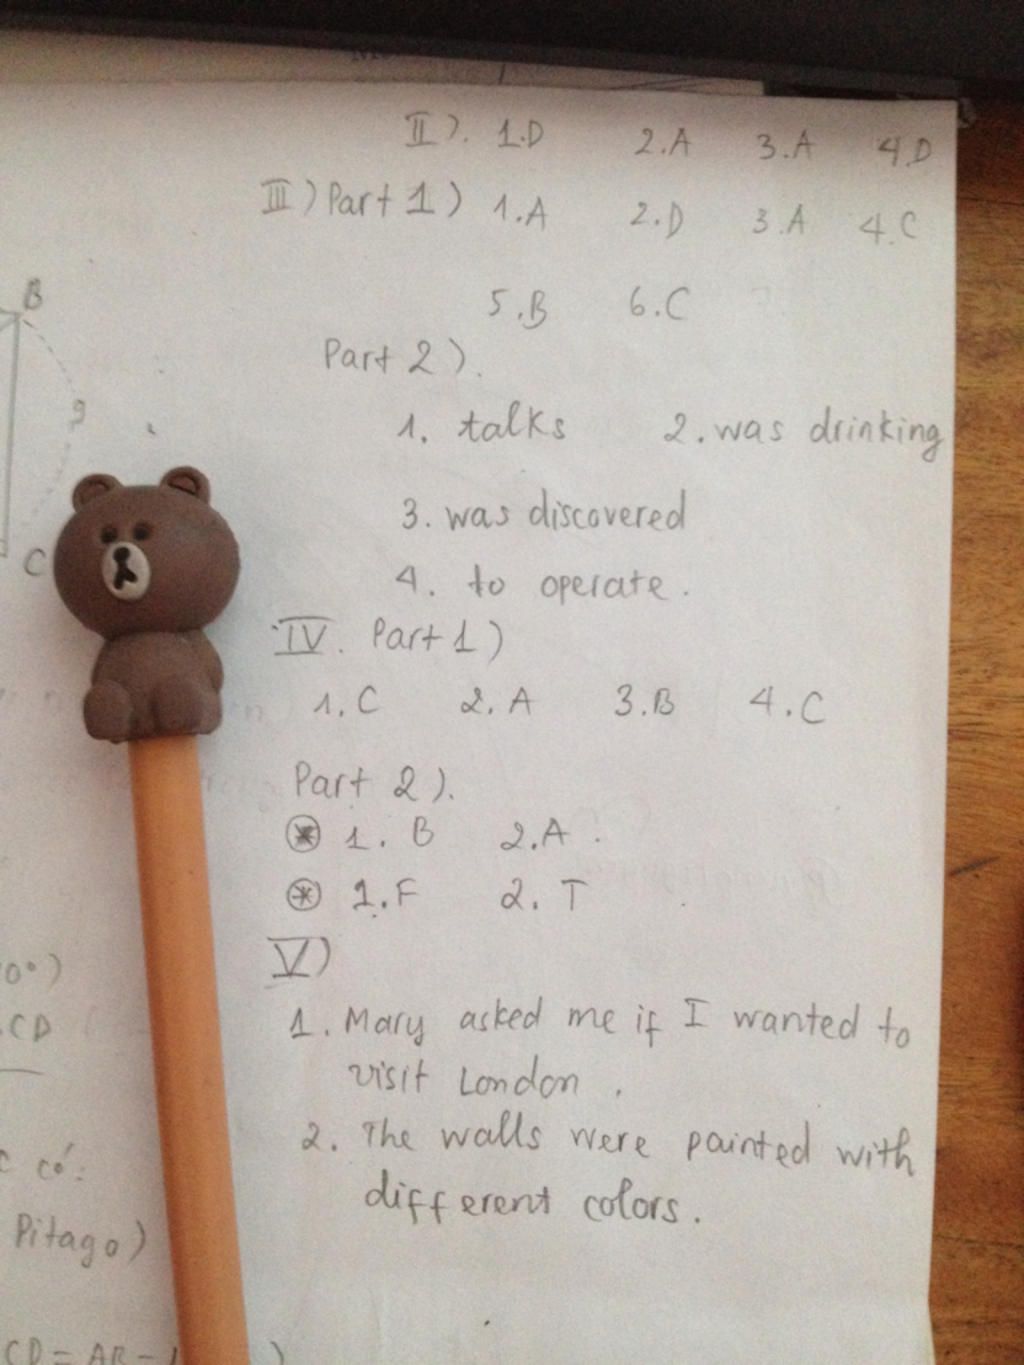 II). 1.D 2.A 3.A 4.D
III) Part 1) 1.A 2.D 3.A 4.C
5.B 6.C
Part 2).
1. talks 2. was drinking
3. was discovered
4. to operate.
IV. Part 1)
1. C 2. A 3. B 4. C
Part 2).
1. B 2. A.
1. F 2. T
V)
1. Mary asked me if I wanted to
visit London.
2. The walls were painted with
different colors.
B
9
C
0°)
CD
có:
Pitago)
CD = AB -